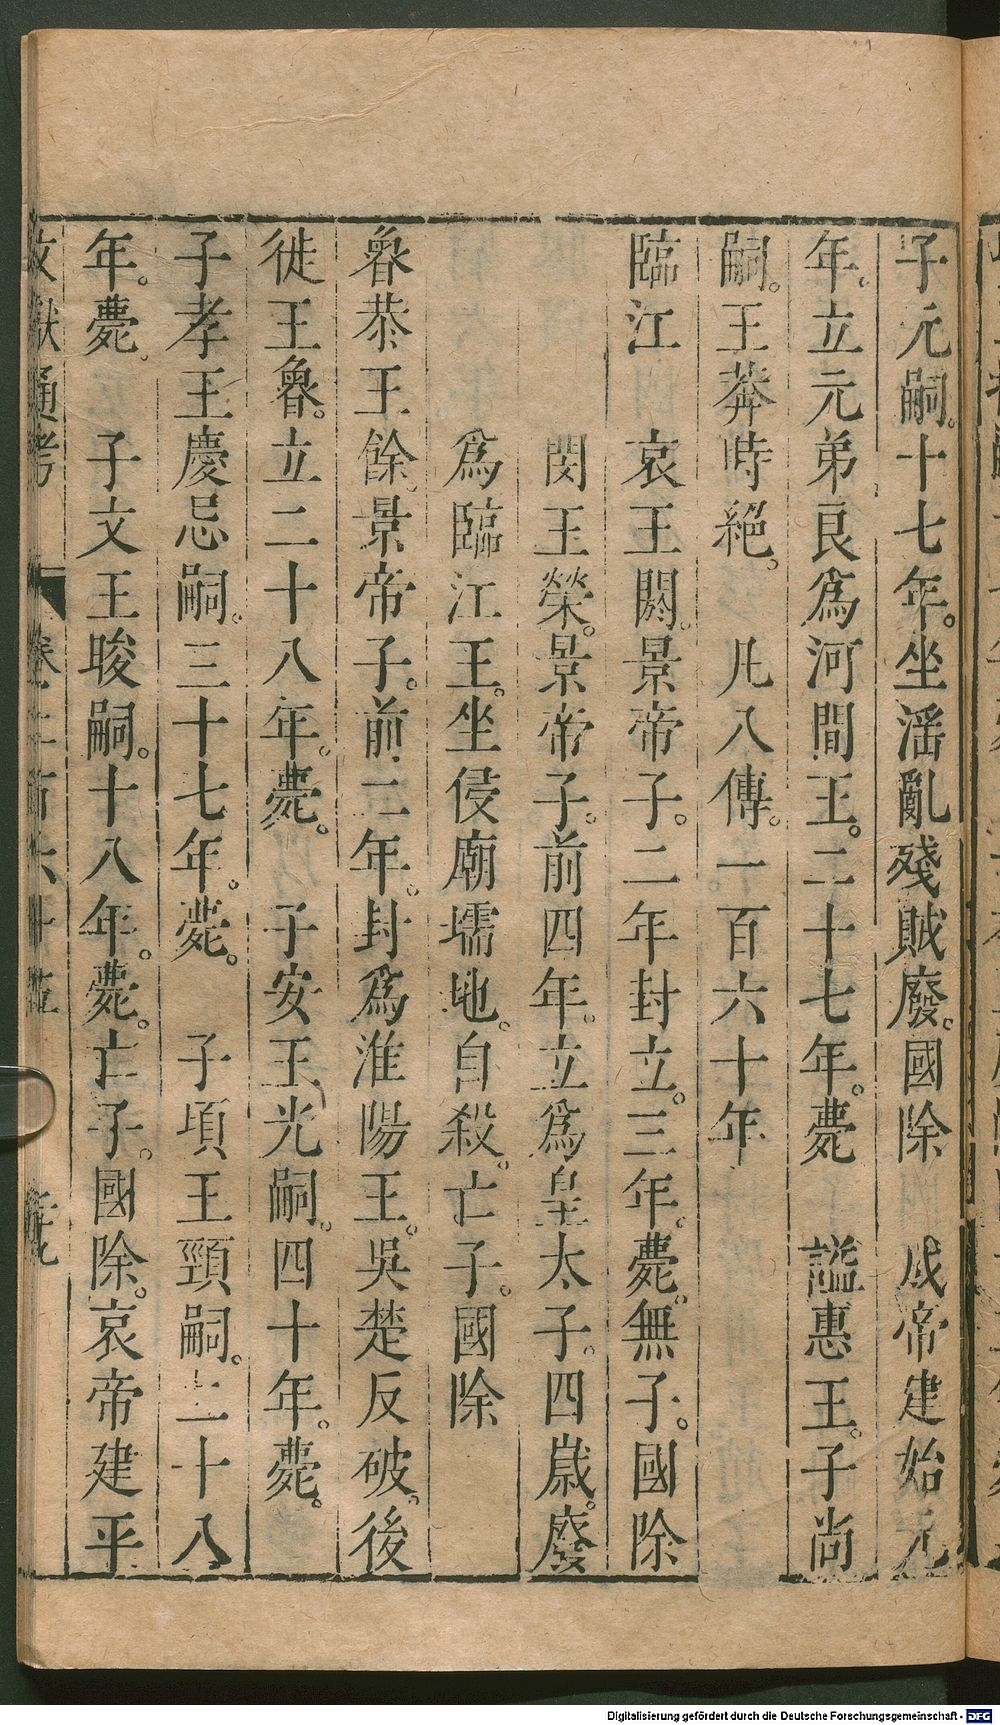 子元嗣。十七年。坐滛亂殘賊廢。國除　成帝建始元
年。立元弟良爲河間王。二十七年。薨　謚惠王。子尚
嗣。王莽時絕。　凡八傳。一百六十年
臨江　哀王閼。景帝子。二年封立。三年。薨。無子。國除
閔王榮。景帝子。前四年。立爲皇太子。四歲。廢
爲臨江王。坐侵廟壖地。自殺。亡子。國除
魯恭王餘。景帝子。前二年。封爲淮陽王。吳楚反破。後
徙王魯。立二十八年。薨。　子安王光嗣。四十年。薨。
子孝王慶忌嗣。三十七年。薨。　子頃王頸嗣。二十八
年。薨。　子文王晙嗣。十八年。薨。亡子。國除。哀帝建平
文獻通考　卷二百六十
Digitalisierung gefördert durch die Deutsche Forschungsgemeinschaft - DFG